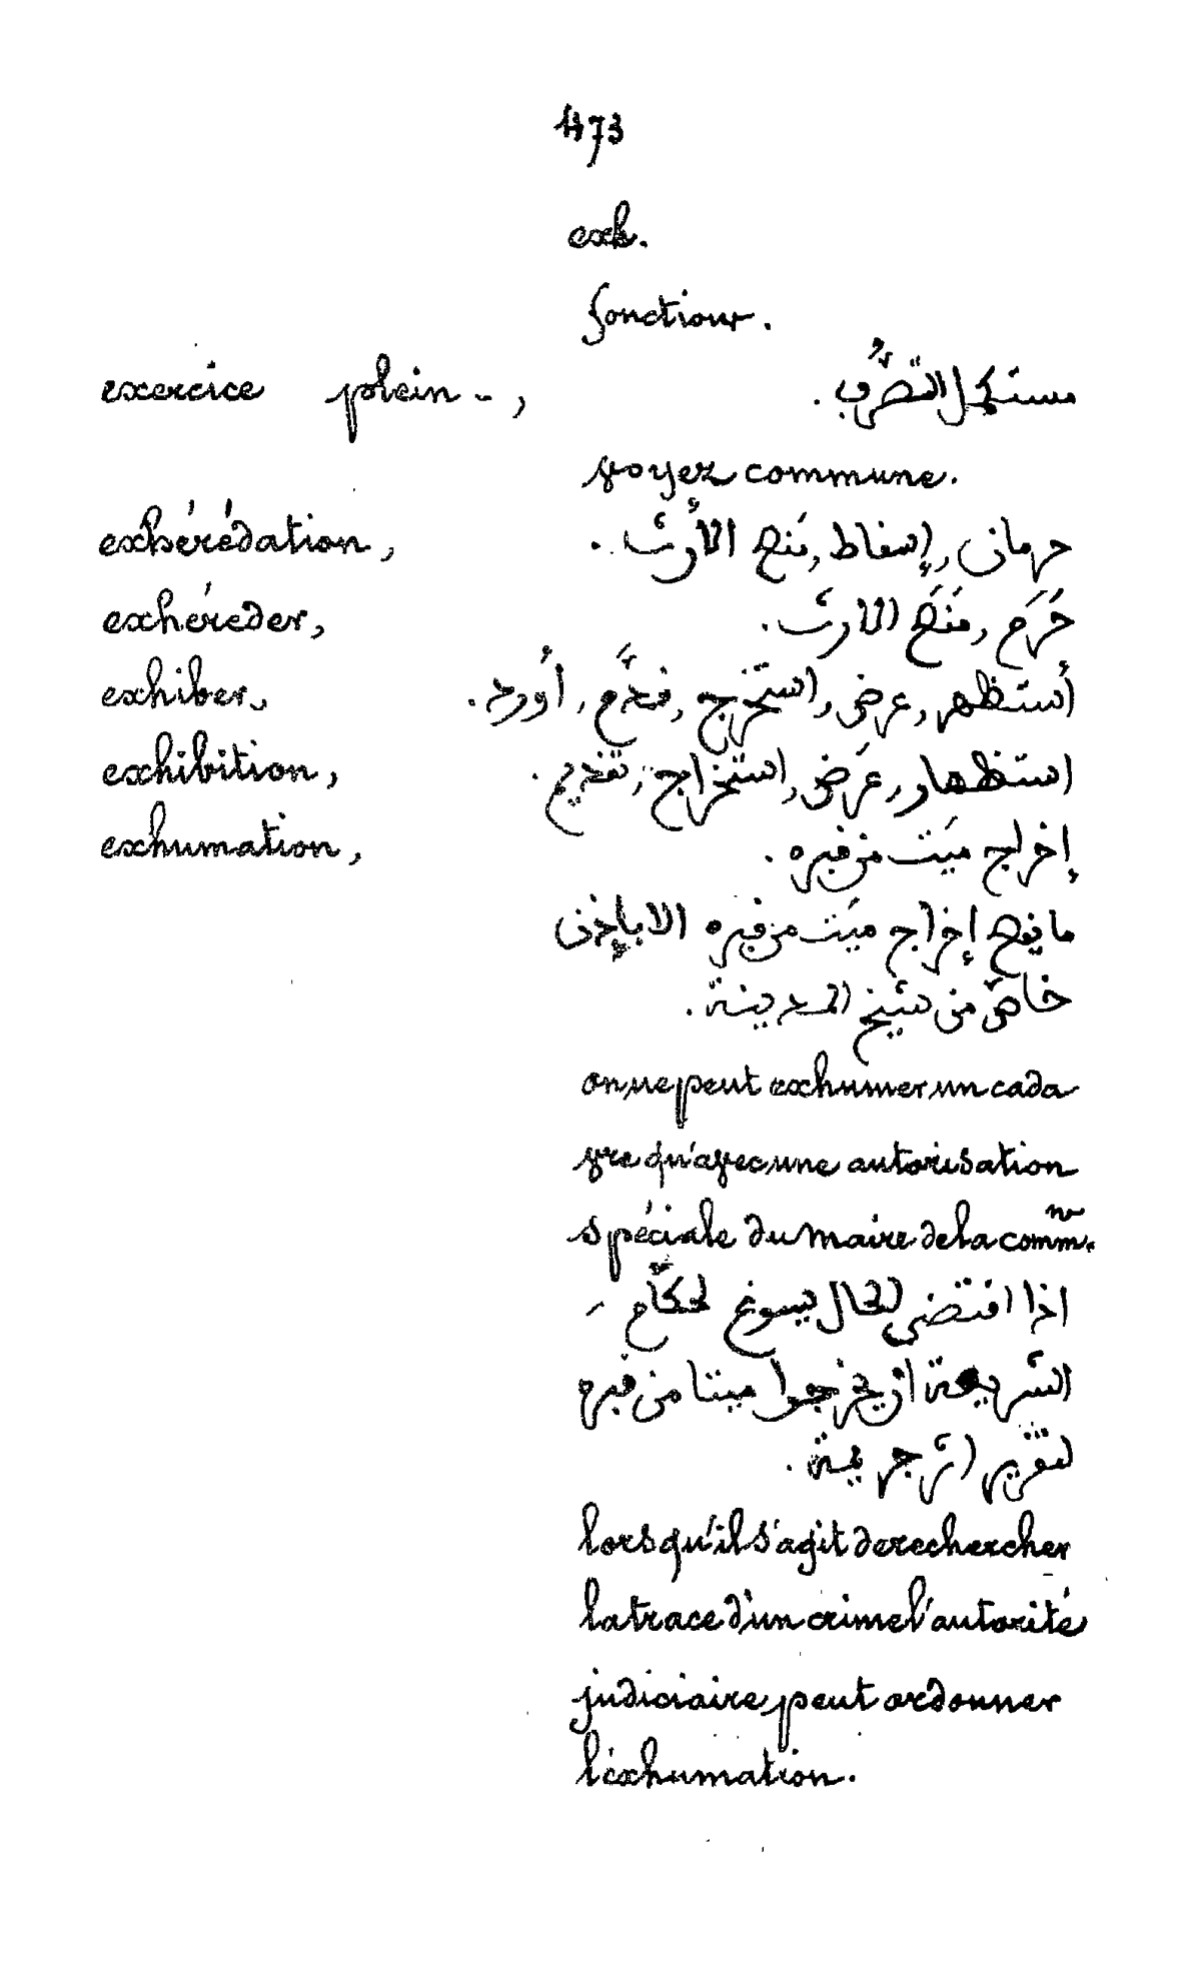 473
exh.
fonction.
exercice plein -, مستكمل التصرّف.
voyez commune.
exhérédation, حرمان, إسقاط, منع الأرث.
exhéréder, حَرَم, مَنَع الارث.
exhiber, أستظهر, عرض, استخرج, قدّم, أورد.
exhibition, استظهار, عَرض, استخراج, تقديم.
exhumation, إخراج ميَت من قبره.
ما يقع إخراج ميَت من قبره الا بإذن
خاصّ من شيخ المدينة.
on ne peut exhumer un cada
vre qu'avec une autorisation
spéciale du maire de la comm.
اذا اقتضى الحال يسوغ لحكّام
الشريعة ان يخرجوا ميتا من قبره
لتقرير اثر جريمة.
lorsqu'il s'agit de rechercher
la trace d'un crime l'autorité
judiciaire peut ordonner
l'éxhumation.